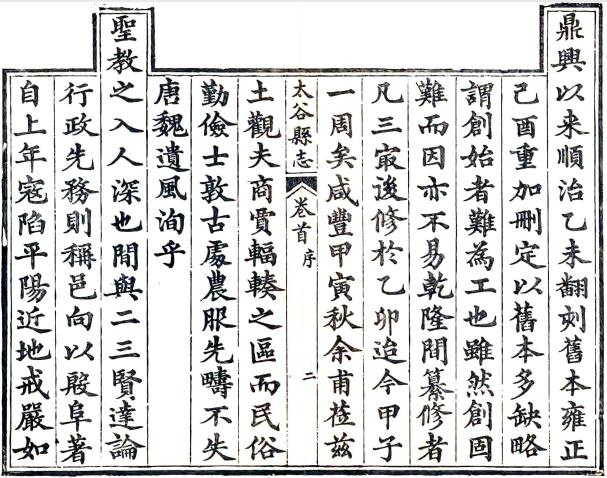 鼎興以来順治乙未翻刻舊本雍正
己酉重加刪定以舊本多缺略
謂創始者難為工也雖然創固
難而因亦不易乾隆間纂修者
凡三㝡後修於乙卯迨今甲子
一周矣咸豐甲寅秋余甫莅兹
太谷縣志 卷首序 二
土觀夫商賈輻輳之區而民俗
勤儉士敦古處農服先疇不失
唐魏遺風洵乎
聖教之入人深也間與二三賢達論
行政先務則稱邑向以殷阜著
自上年寇陷平陽近地戒嚴如